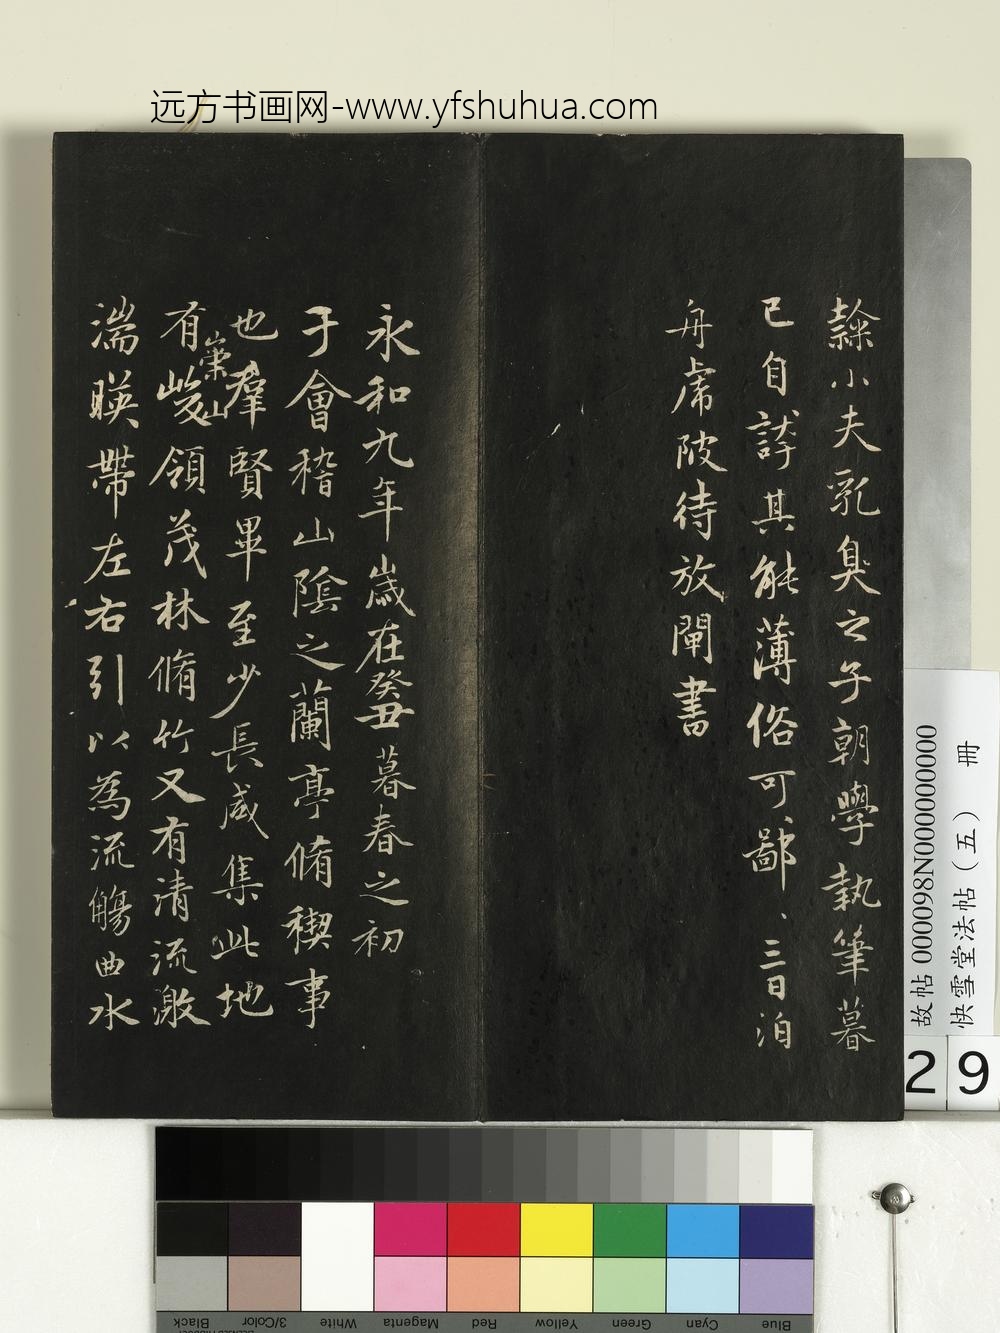 远方书画网-www.yfshuhua.com
隸小夫乳臭之子朝學執筆暮
已自誇其能薄俗可〻鄙〻三日泊
舟虎陂待放閘書
永和九年歲在癸丑暮春之初
于會稽山陰之蘭亭脩稧事
也羣賢畢至少長咸集此地
有崇山峻領茂林脩竹又有清流激
湍暎帶左右引以為流觴曲水
故帖 000098N000000000
快雪堂法帖（五） 冊
29
Blue
Cyan
Green
Yellow
Red
Magenta
White
3/Color
Black